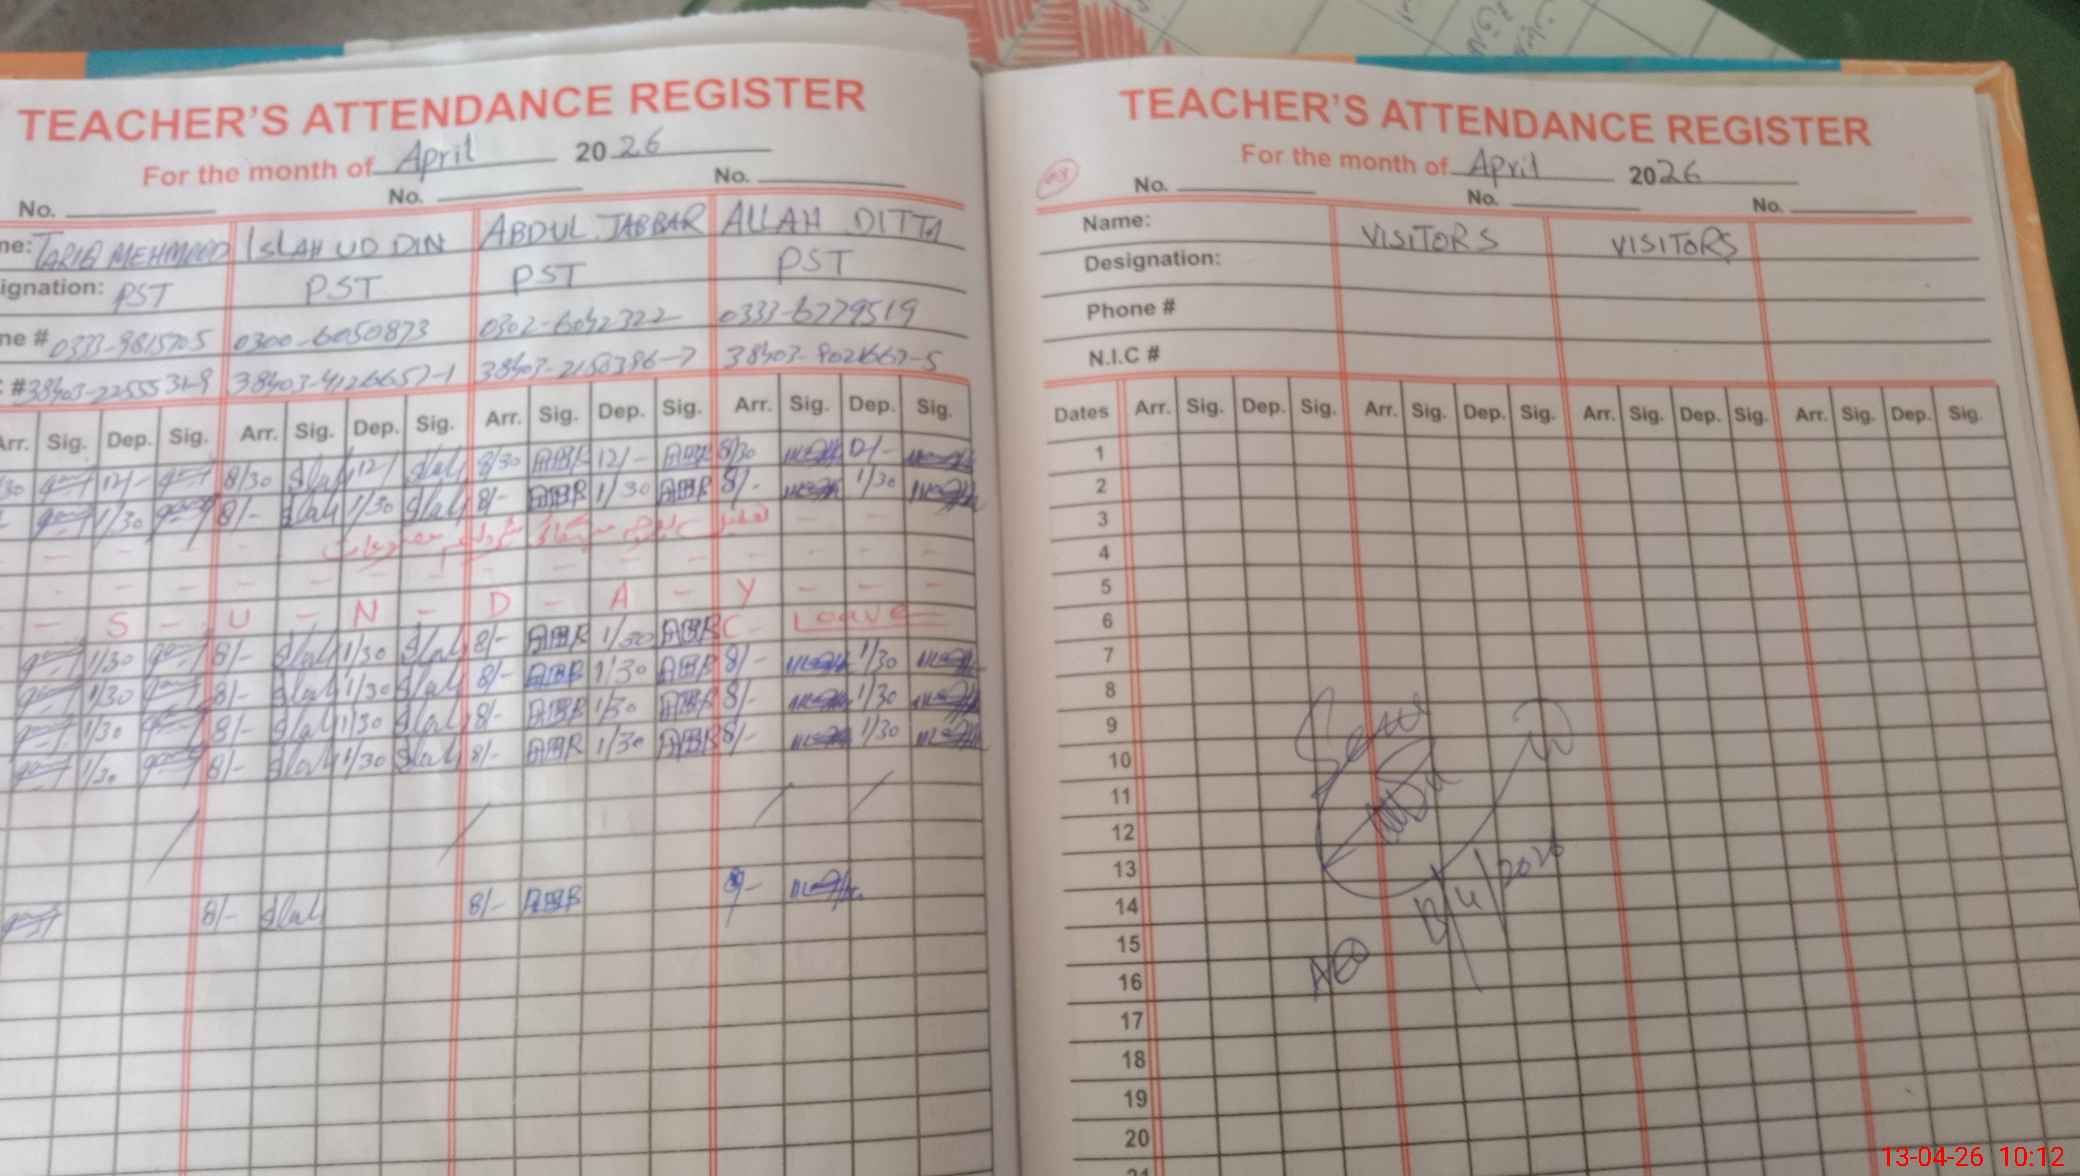 TEACHER'S ATTENDANCE REGISTER
For the month of April 2026
No. No. No.
ne: TARIQ MEHMOOD ISLAH UD DIN ABDUL JABBAR ALLAH DITTA
ignation: PST PST PST PST
ne # 0333-9815705 0300-6050873 0302-6042322 0333-6779519
# 38403-4126657-1
Arr. Sig. Dep. Sig. Arr. Sig. Dep. Sig. Arr. Sig. Dep. Sig. Arr. Sig. Dep. Sig.
30 12/- 8/30 Slah 12/ Slah 8/30 ABR 12/- ABR 8/30 12/-
1/30 8/- Slah 1/30 Slah 8/- ABR 1/30 ABR 8/- 1/30
- S - U - N - D - A - Y - - -
1/30 8/- Slah 1/30 Slah 8/- ABR 1/30 ABR C- Leave
1/30 8/- Slah 1/30 Slah 8/- ABR 1/30 ABR 8/- 1/30
1/30 8/- Slah 1/30 Slah 8/- ABR 1/30 ABR 8/- 1/30
1/30 8/- Slah 1/30 Slah 8/- ABR 1/30 ABR 8/- 1/30
8/- Slah 8/- ABR
TEACHER'S ATTENDANCE REGISTER
For the month of April 2026
No. No. No.
Name: VISITORS VISITORS
Designation:
Phone #
N.I.C #
Dates Arr. Sig. Dep. Sig. Arr. Sig. Dep. Sig. Arr. Sig. Dep. Sig. Arr. Sig. Dep. Sig.
1
2
3
4
5
6
7
8
9
10
11
12
13
14
15
16
17
18
19
20
21
Seen
13/4/2026
AEO
13-04-26 10:12